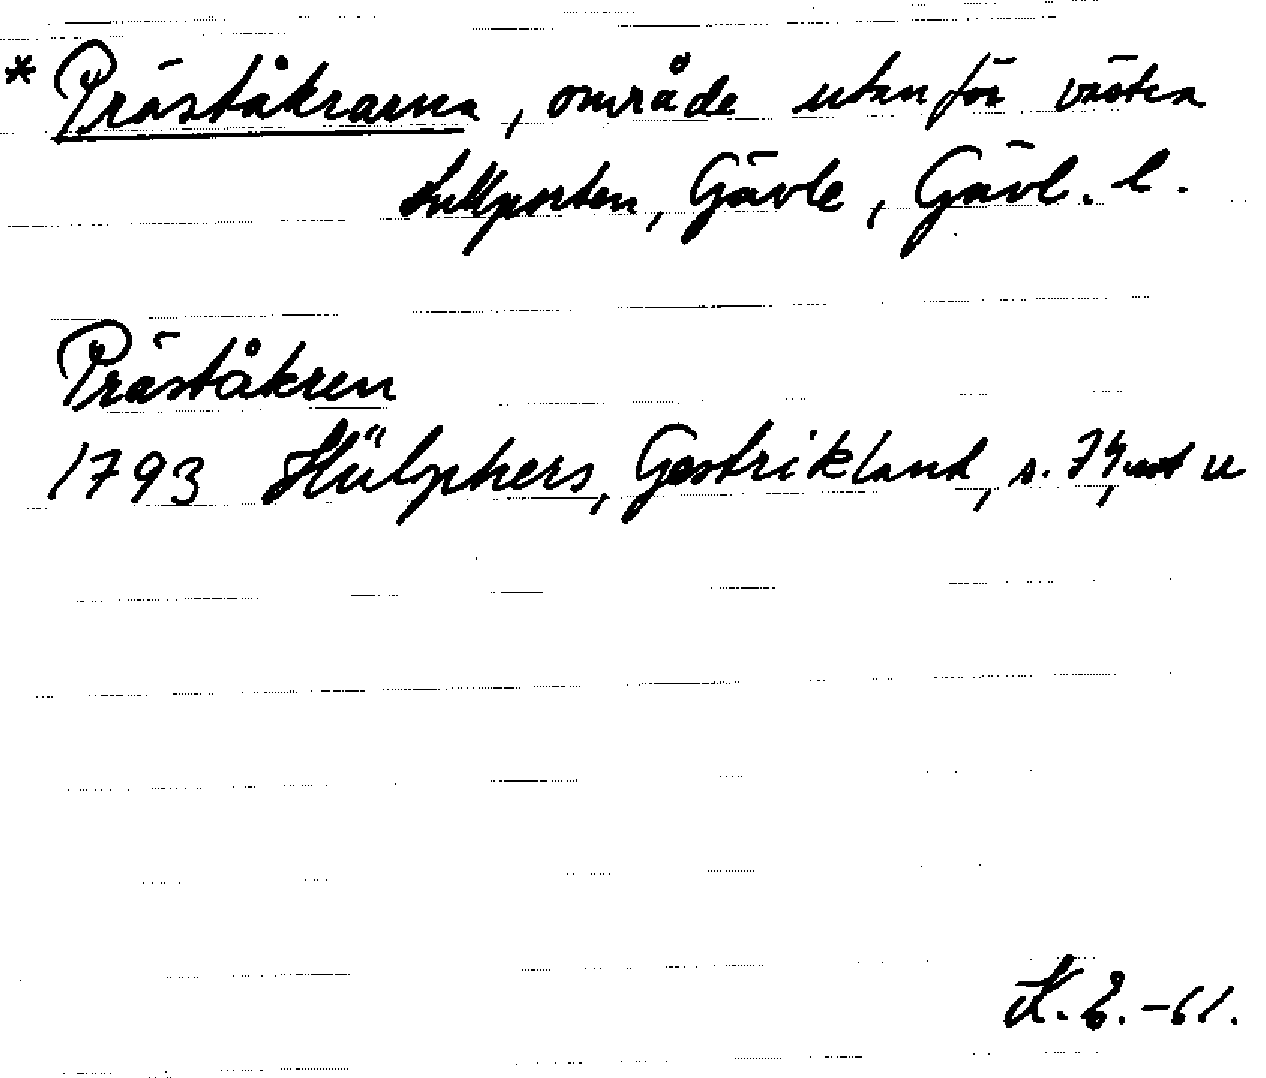 * Präståkrarna, område utanför västra
tullporten, Gävle, Gävl. l.
Präståkren
1793 Hülphers, Gestrikland, s. 74, not u
K.E.-61.